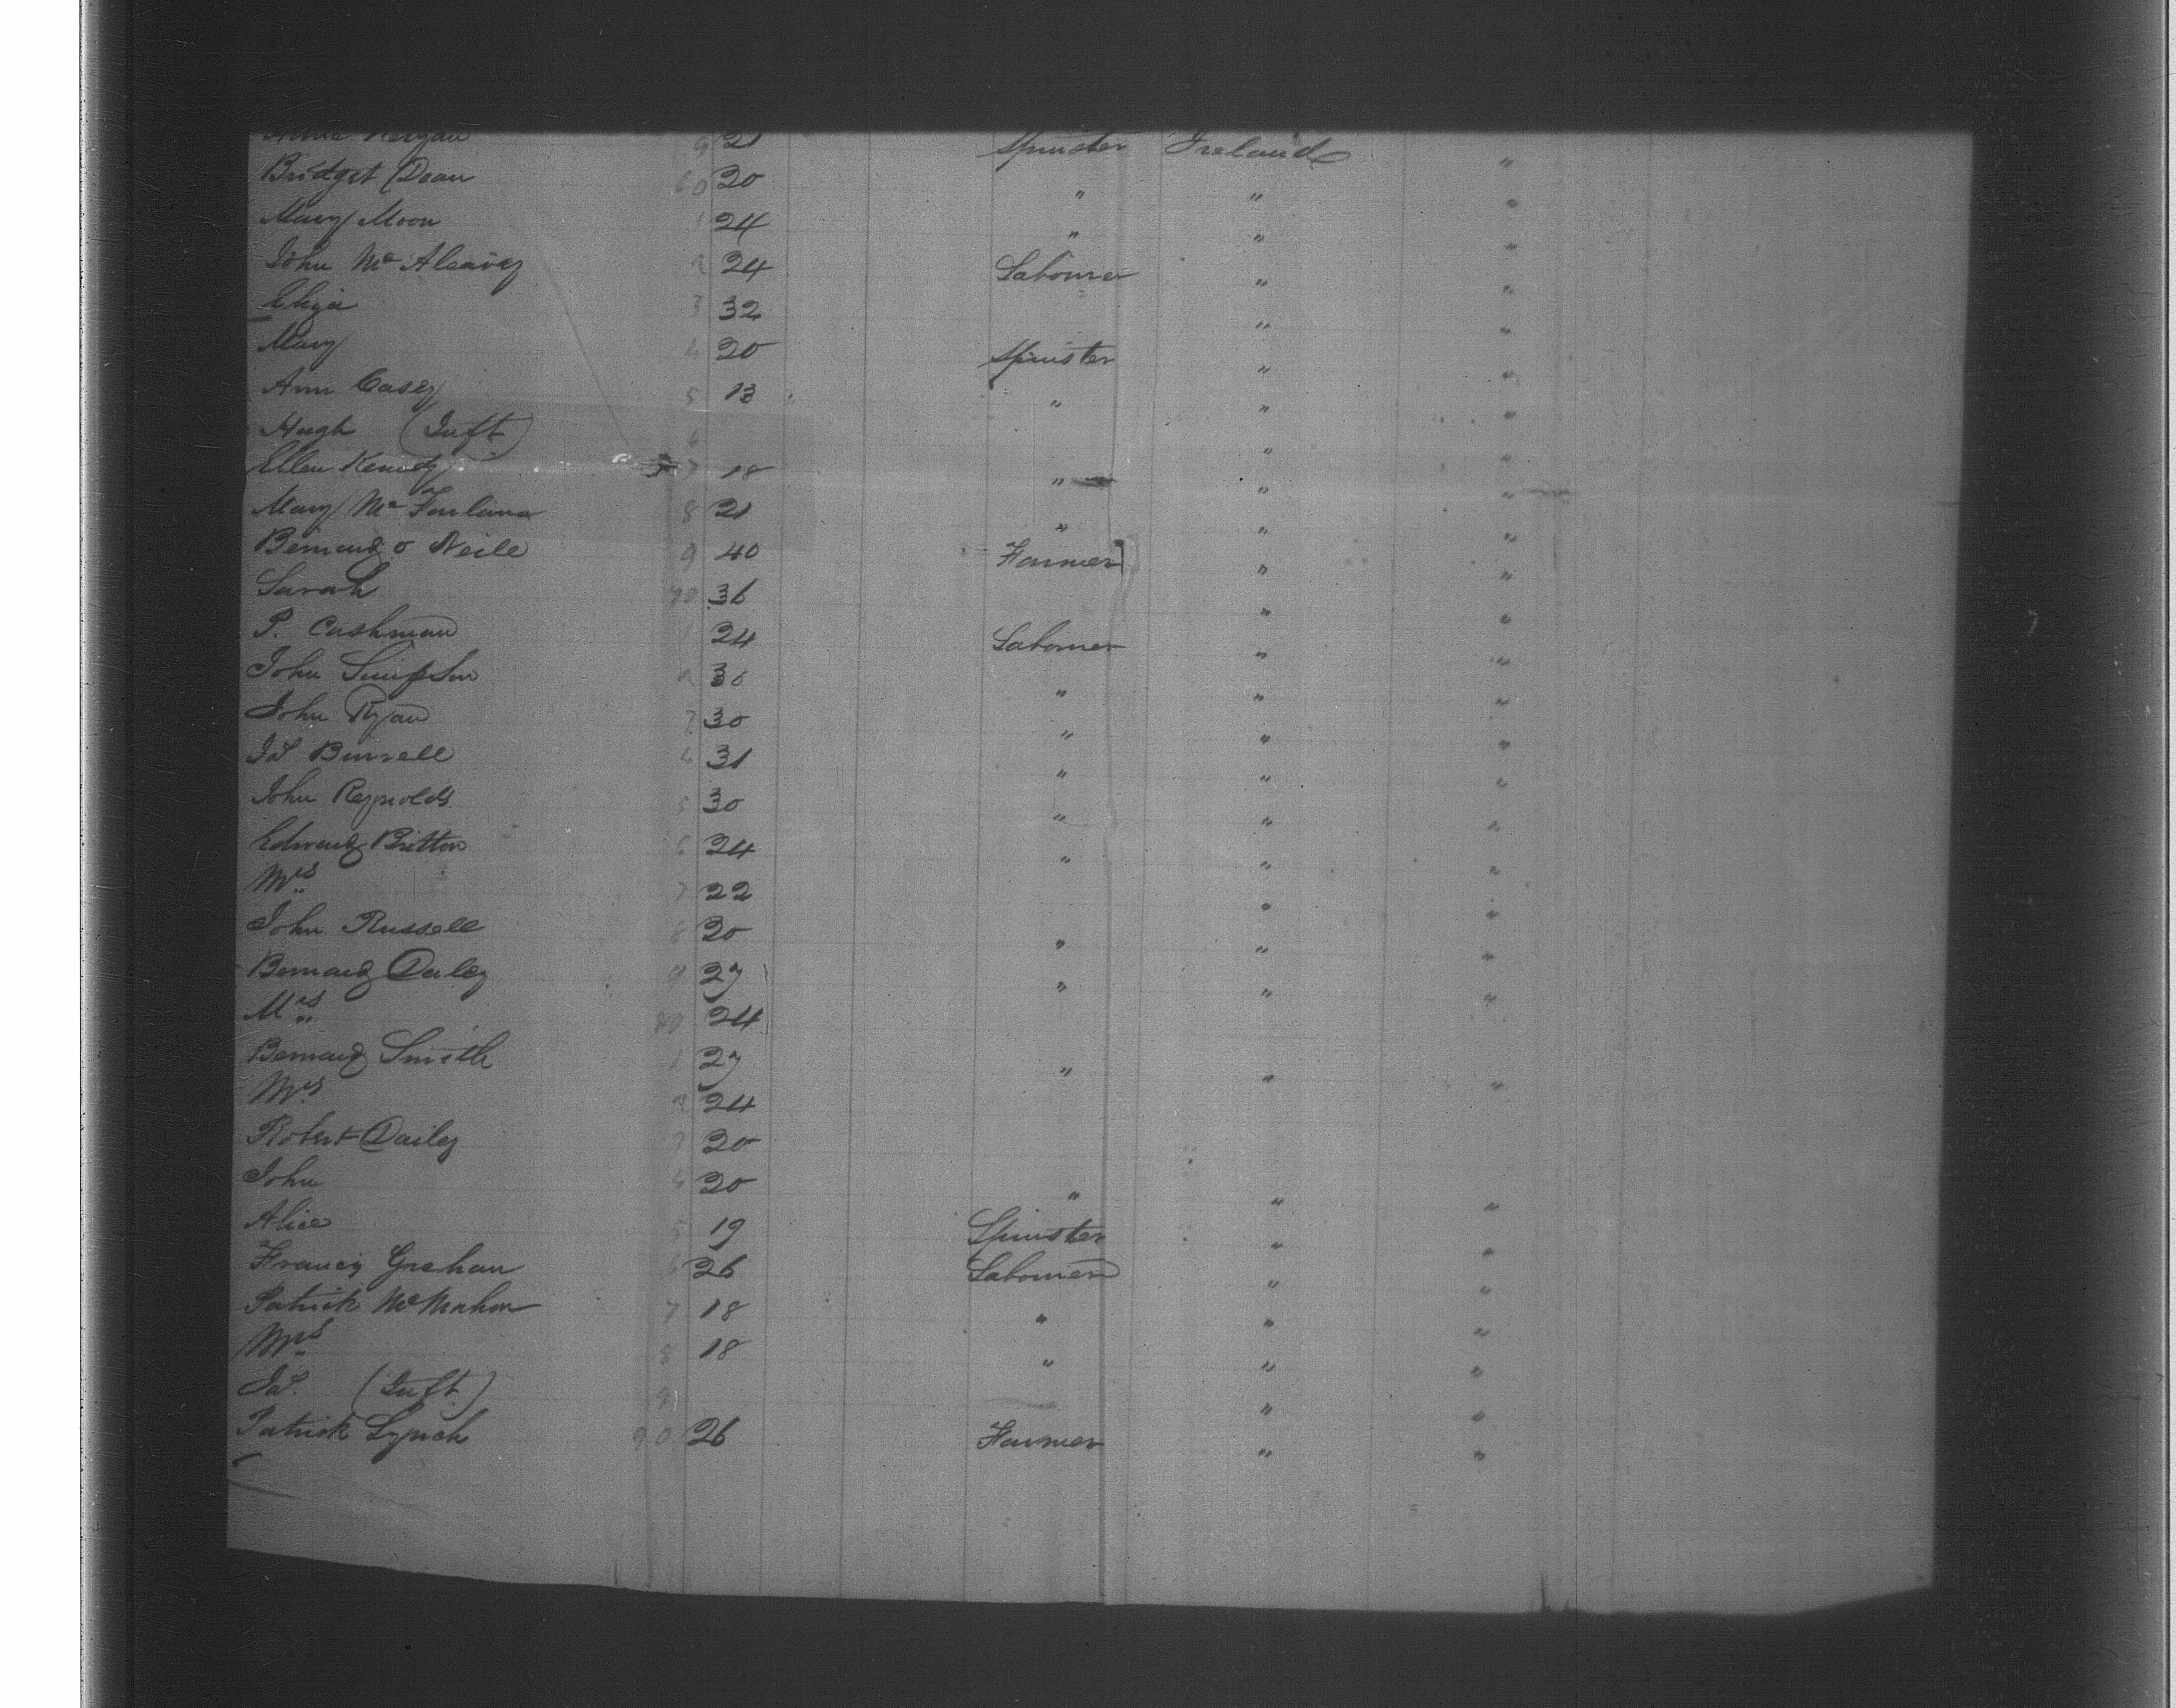 21 Spinster Ireland "
Bridget Doan 60 20 " " "
Mary Moon 1 24 " " "
John Mc Aleavey 2 24 Labourer " "
Eliza 3 32 " "
Mary 4 20 Spinster " "
Ann Casey 5 13 " " "
Hugh (Inft) 6 " "
Ellen Kenedy 7 18 " " "
Mary Mc Farlane 8 21 " " "
Bernard o Neile 9 40 Farmer " "
Sarah 70 36 " "
P. Cashman 1 24 Labourer " "
John Simpson 2 30 " " "
John Ryan 3 30 " " "
Jas Burrell 4 31 " " "
John Reynolds 5 30 " " "
Edward Britton 6 24 " " "
Mrs 7 22 " "
John Russell 8 20 " " "
Bernard Daley 9 27 " " "
Mrs 80 24
Bernard Smith 1 27 " " "
Mrs 2 24
Robert Dailey 3 20
John 4 20 " " "
Alice 5 19 Spinster " "
Francis Grehan 6 26 Labourer " "
Patrick McMahon 7 18 " " "
Mrs 8 18 " " "
Jas. (Inft) 9 " "
Patrick Lynch 90 26 Farmer " "